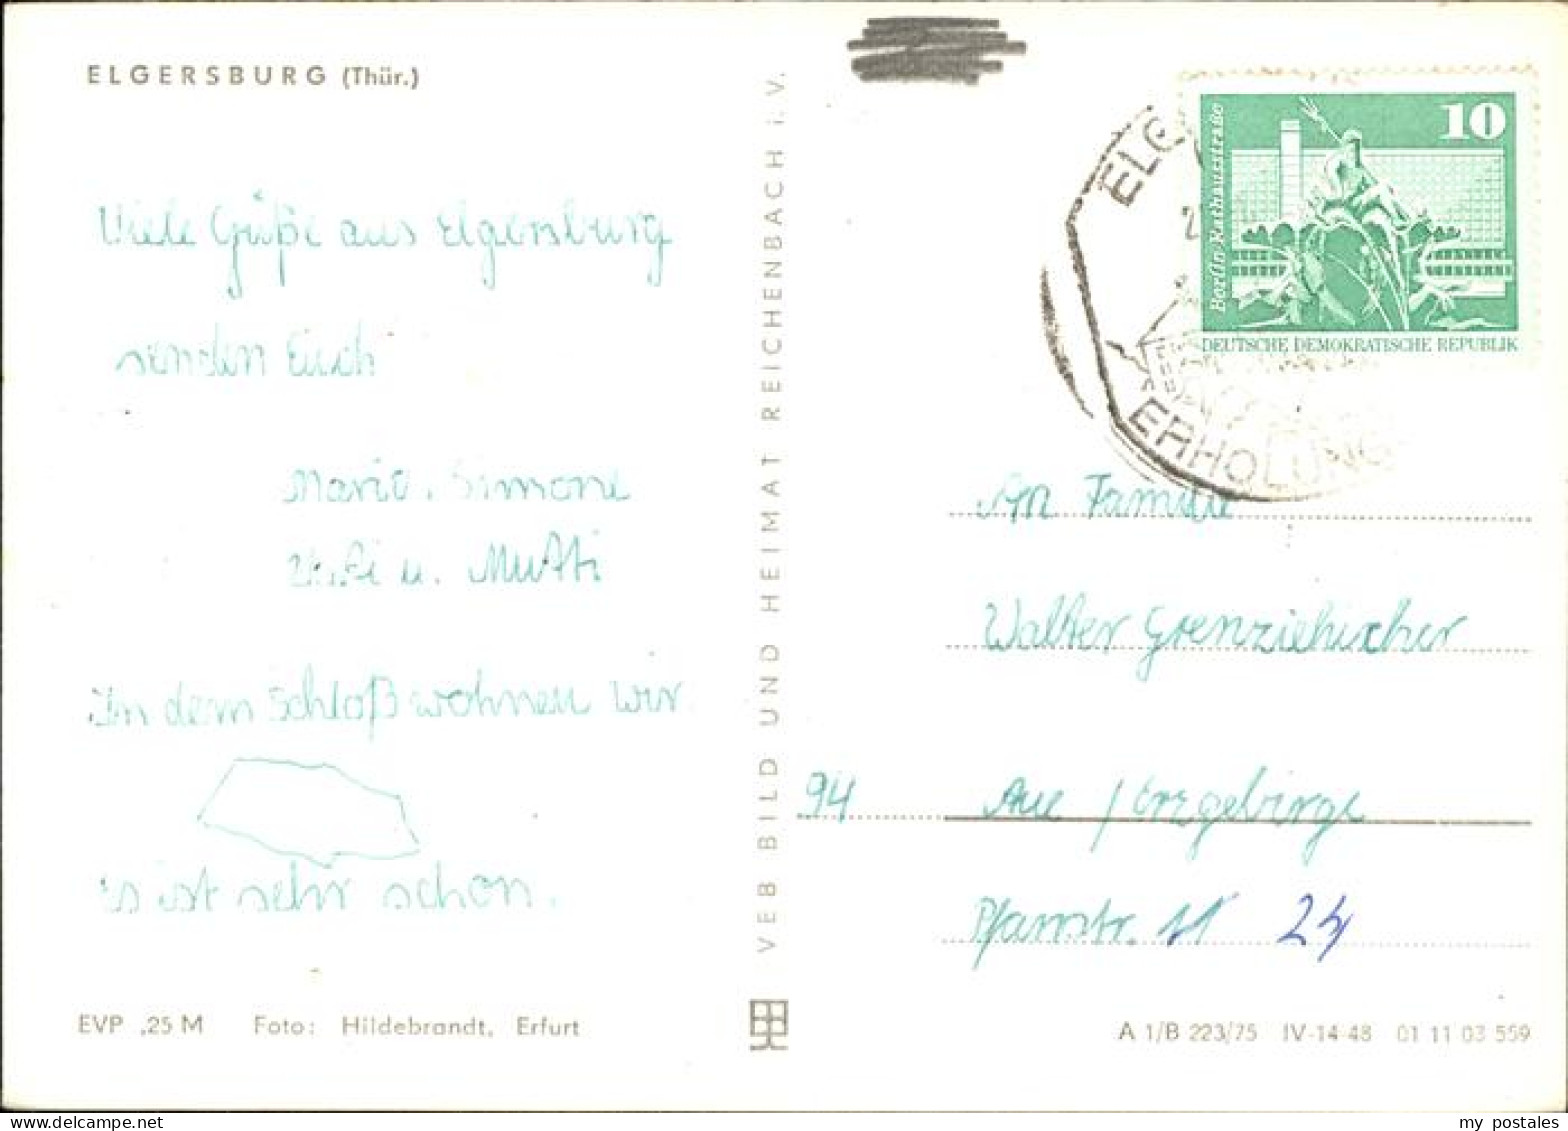 ELGERSBURG (Thür.)
Viele Grüße aus Elgersburg
senden Euch
Mario, Simone
u. Mutti
In dem Schloß wohnen wir.
es ist sehr schön.
EVP ,25 M Foto: Hildebrandt, Erfurt
VEB BILD UND HEIMAT REICHENBACH i. V.
10
Berlin, Rathausstraße
DEUTSCHE DEMOKRATISCHE REPUBLIK
ELG
ERHOLUNG
An Familie
Walter
94 Aue / Erzgebirge
Pfarrstr. 24
A 1/B 223/75 IV-14-48 01 11 03 559
my postales